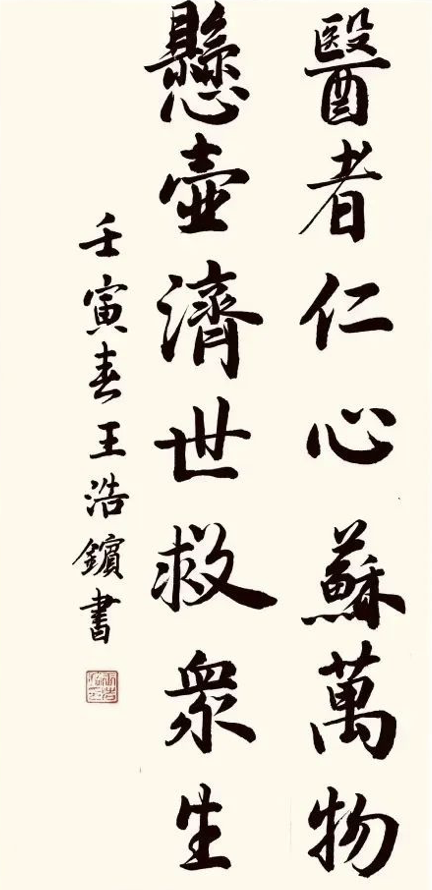 醫者仁心蘇萬物
懸壺濟世救衆生
壬寅春王浩鑌書